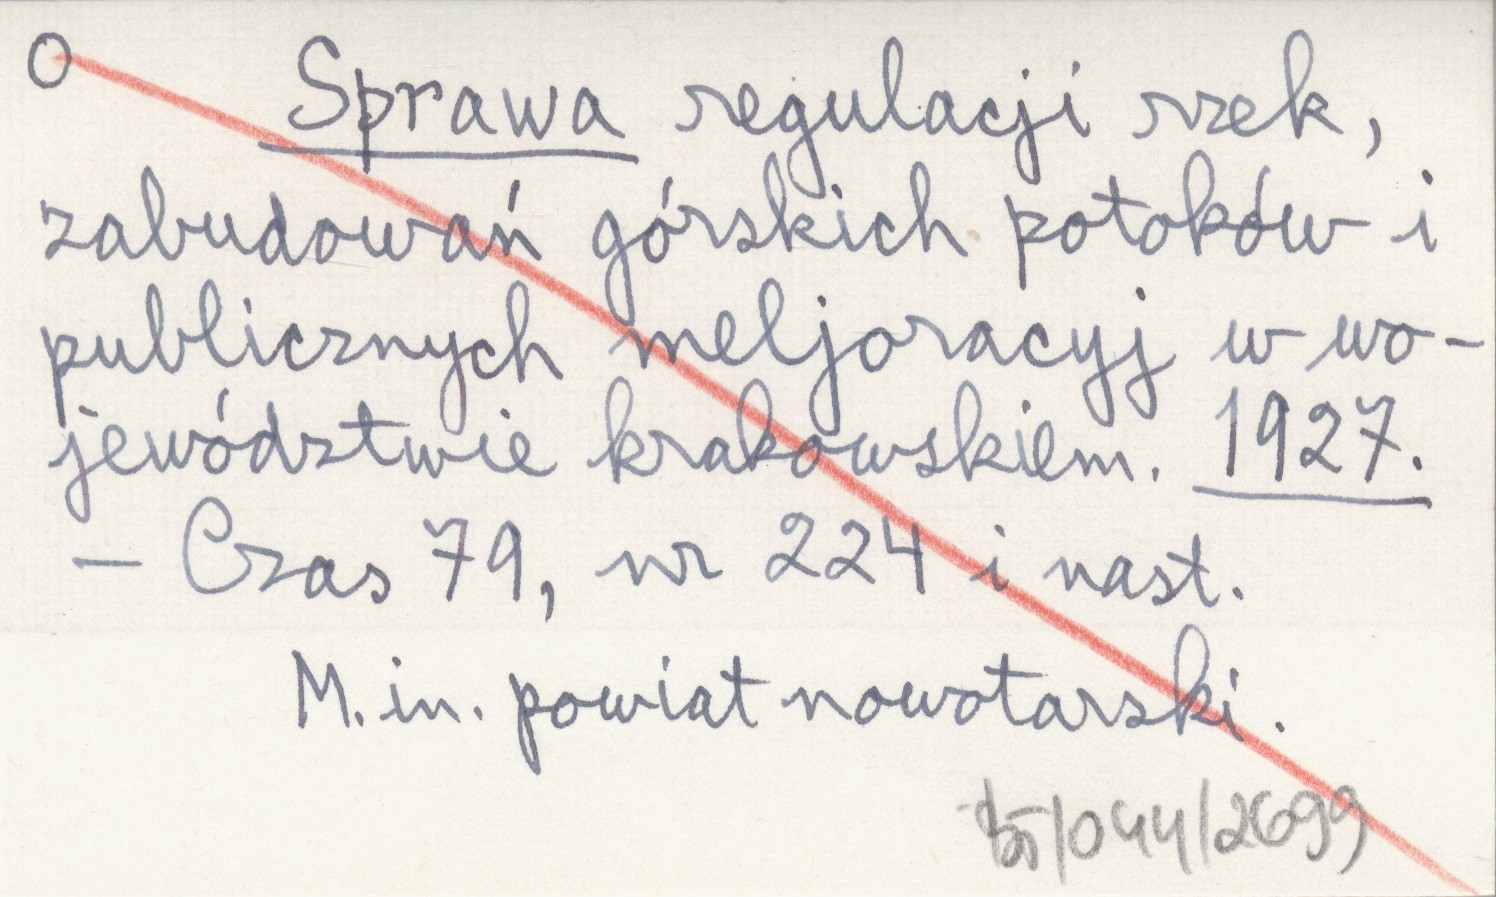 O Sprawa regulacji rzek,
zabudowań górskich potoków i
publicznych meljoracyj w wo-
jewództwie krakowskiem. 1927.
— Czas 79, nr 224 i nast.
M. in. powiat nowotarski.
/044/2699